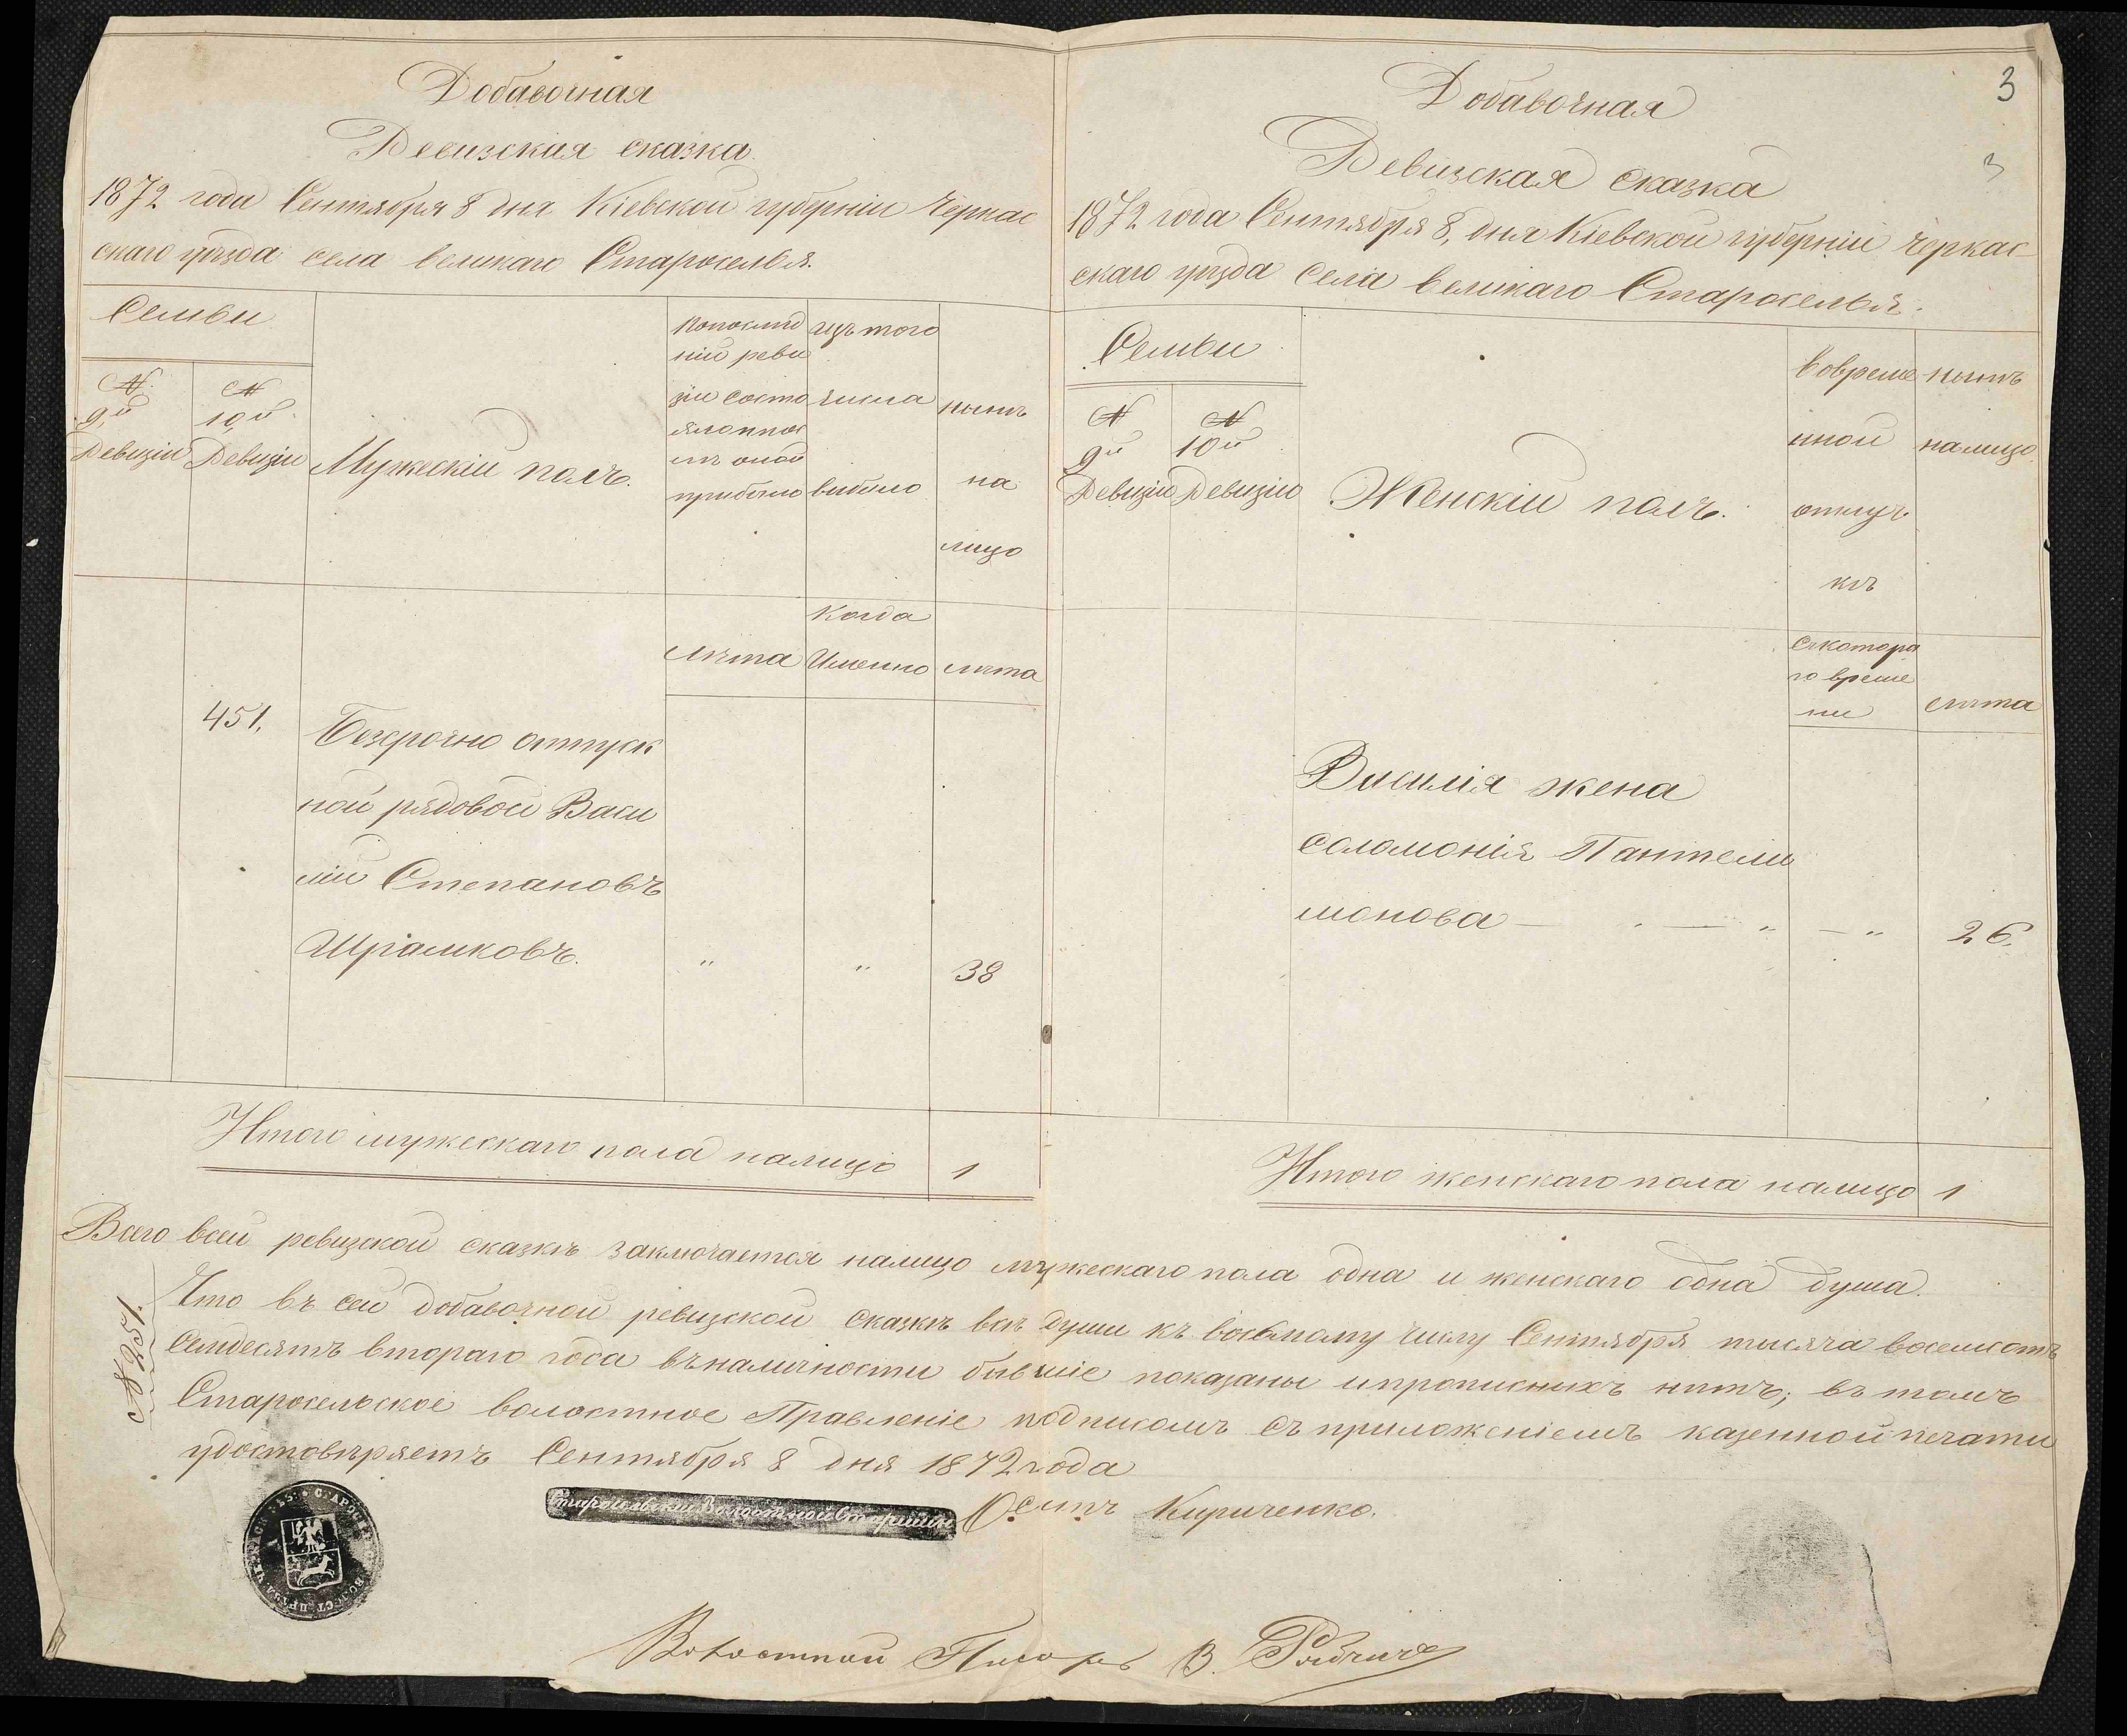 Добавочная
Ревизская сказка
1872 года Сентября 8 дня Кіевской губерніи Черкас
скаго уѣзда села великаго Староселья.
Семьи
№ 9й Ревизіи
№ 10й Ревизіи
Мужескій полъ.
Попослѣд
ній реви
зіи состо
яло ипос
лѣ оной
прибыло
изъ того
числа
выбыло
нынѣ
на
лицо
лѣта
Когда
Именно
лѣта
451.
Безсрочно отпуск
ной рядовой Васи
лій Степановъ
Шрамковъ. " " 38
Итого мужескаго пола налицо 1
3
3
Добавочная
Ревизская сказка
1872 года Сентября 8, дня Кіевской губерніи Черкас-
скаго уѣзда Села великаго Староселья.
Семьи
№ 9й Ревизіи
№ 10й Ревизіи
Женскій полъ.
вовреме
нной
отлуч
кѣ
нынѣ
налицо.
Скотора
го време
ни
лѣта
Василія жена
Соломонія Пантели
монова — " — " 26.
Итого женскаго пола налицо 1
Всего всей ревизской сказкѣ заключается налицо мужескаго пола одна и женскаго одна душа.
Что въ сей добавочной ревизской сказкѣ всѣ души къ восьмому числу Сентября тысяча восемсотъ
Семдесятъ втораго года въналичности бывшіе показаны ипрописныхъ нѣтъ; въ томъ
Старосельское волостное Правленіе подписомъ съ приложеніемъ казенной печати
удостовѣряетъ Сентября 8 дня 1872 года
№ 251.
Старосельскій Волостной Старшина Осипъ Кириченко.
Волостной Писарь В.